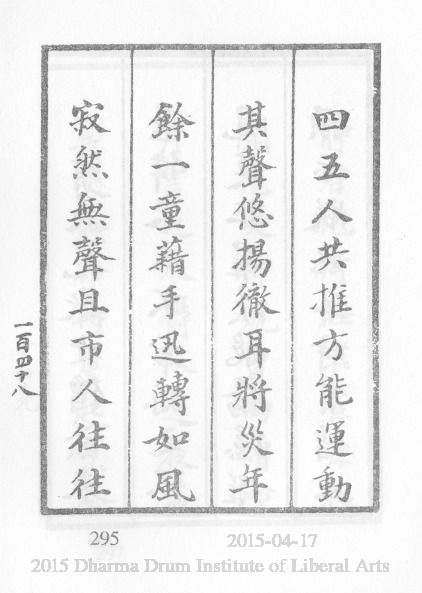 四五人共推方能運動
其聲悠揚徹耳將災年
餘一童藉手迅轉如風
寂然無聲且市人往往
一百四十八
295
2015-04-17
2015 Dharma Drum Institute of Liberal Arts